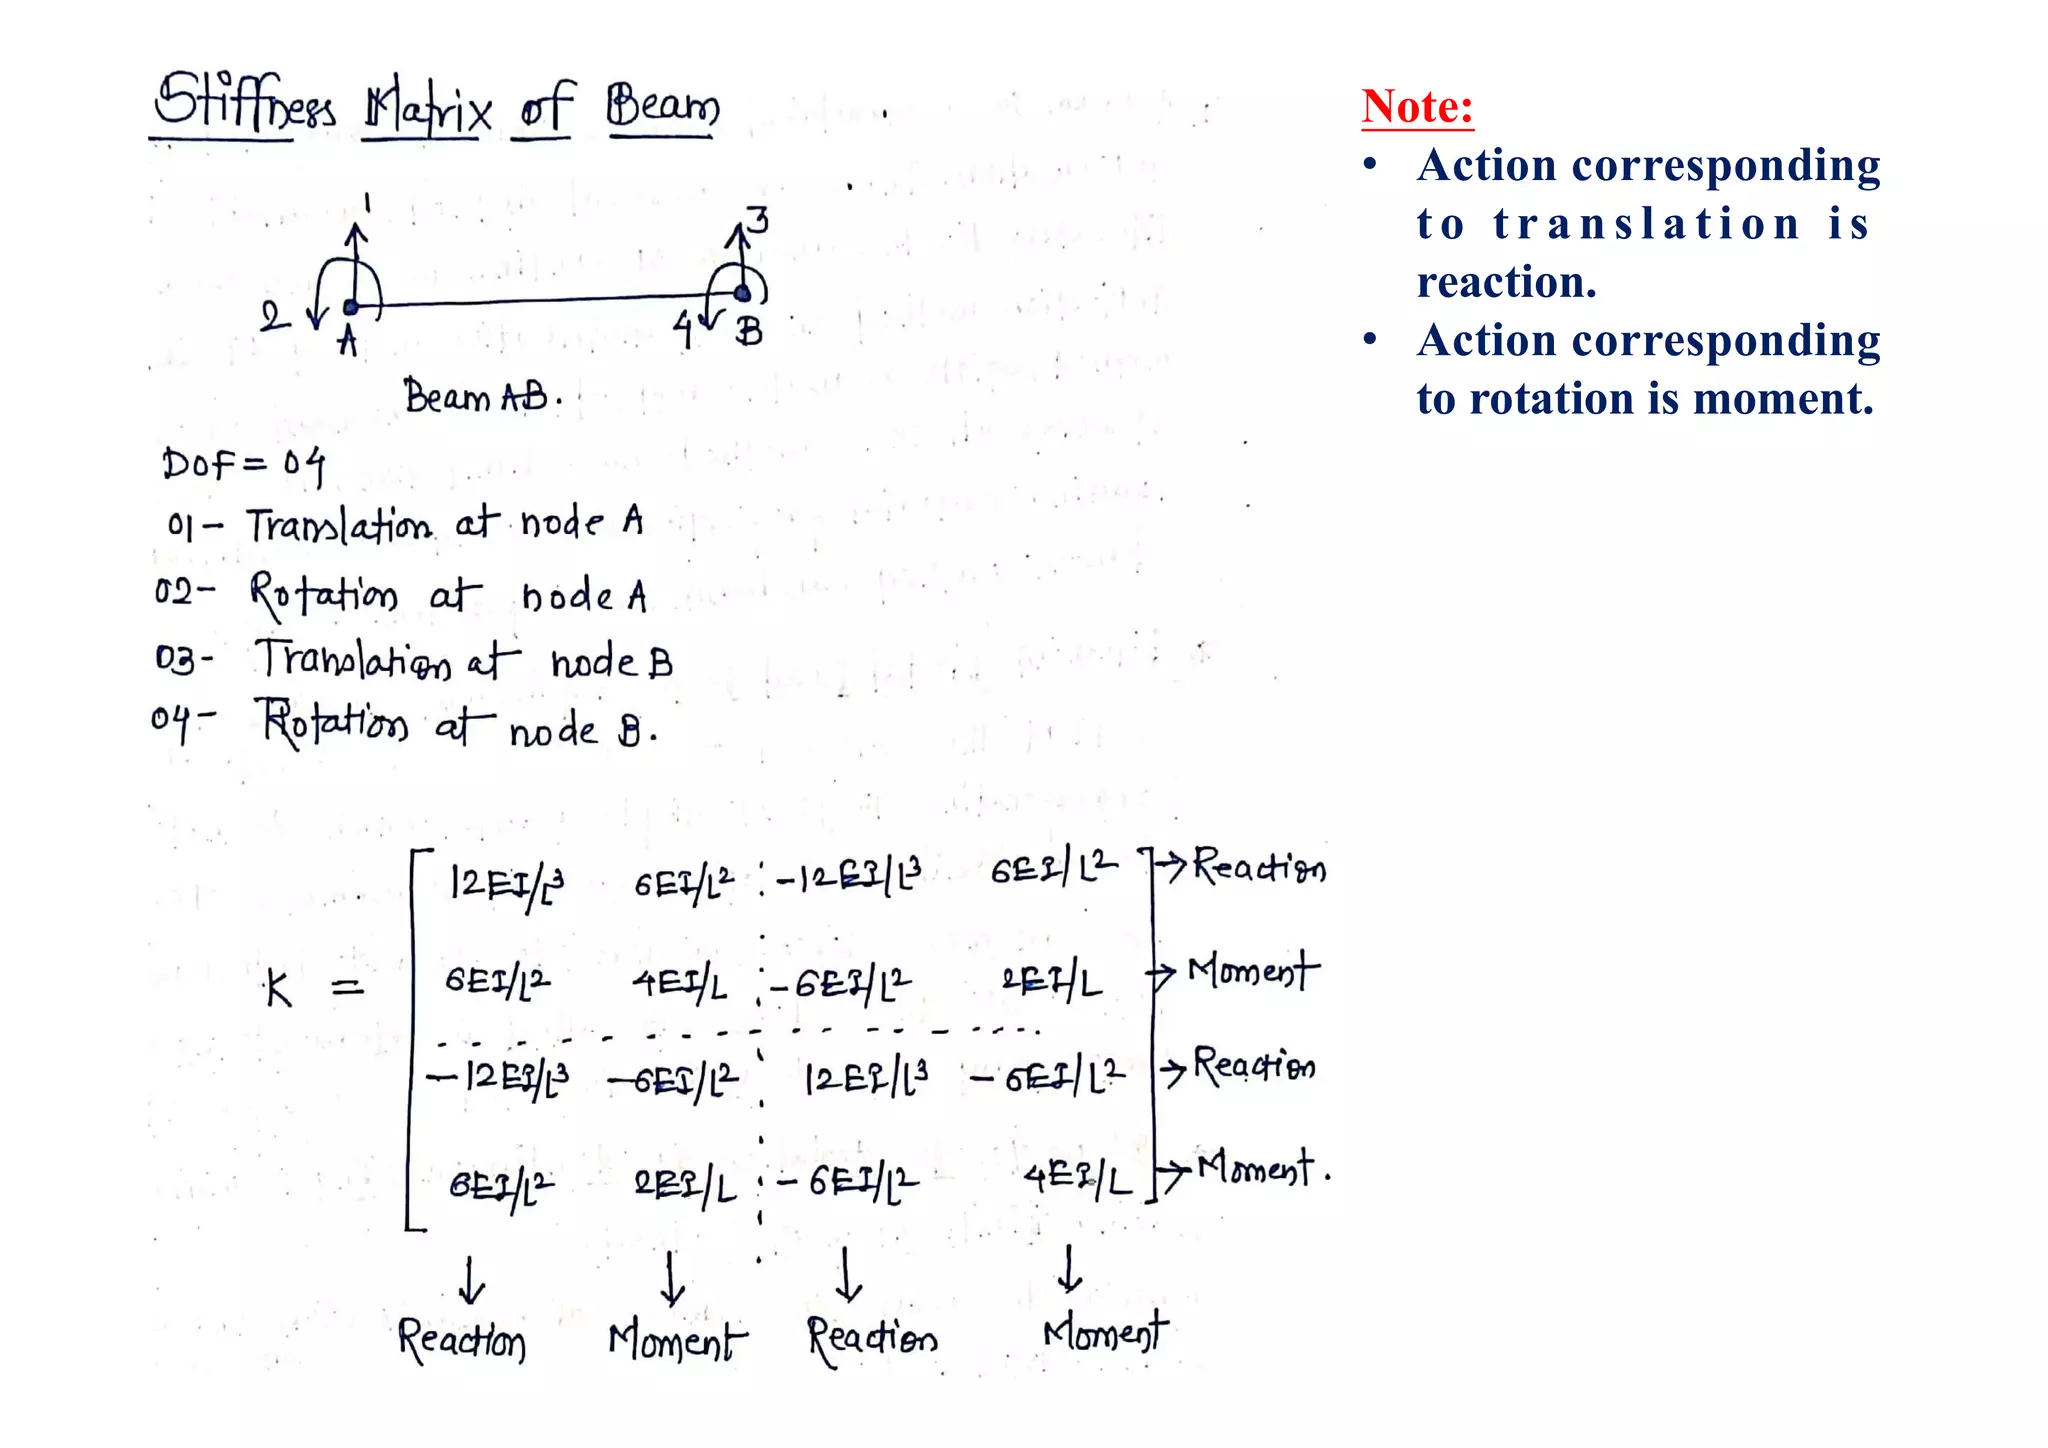 Stiffness Matrix of Beam
1
3
2
A
4
B
Beam AB.
DOF = 04
01- Translation at node A
02- Rotation at node A
03- Translation at node B
04- Rotation at node B.
12EI/L³ 6EI/L² -12EI/L³ 6EI/L² → Reaction
K = 6EI/L² 4EI/L -6EI/L² 2EI/L → Moment
-12EI/L³ -6EI/L² 12EI/L³ -6EI/L² → Reaction
6EI/L² 2EI/L -6EI/L² 4EI/L → Moment.
↓ ↓ ↓ ↓
Reaction Moment Reaction Moment
Note:
• Action corresponding
to translation is
reaction.
• Action corresponding
to rotation is moment.